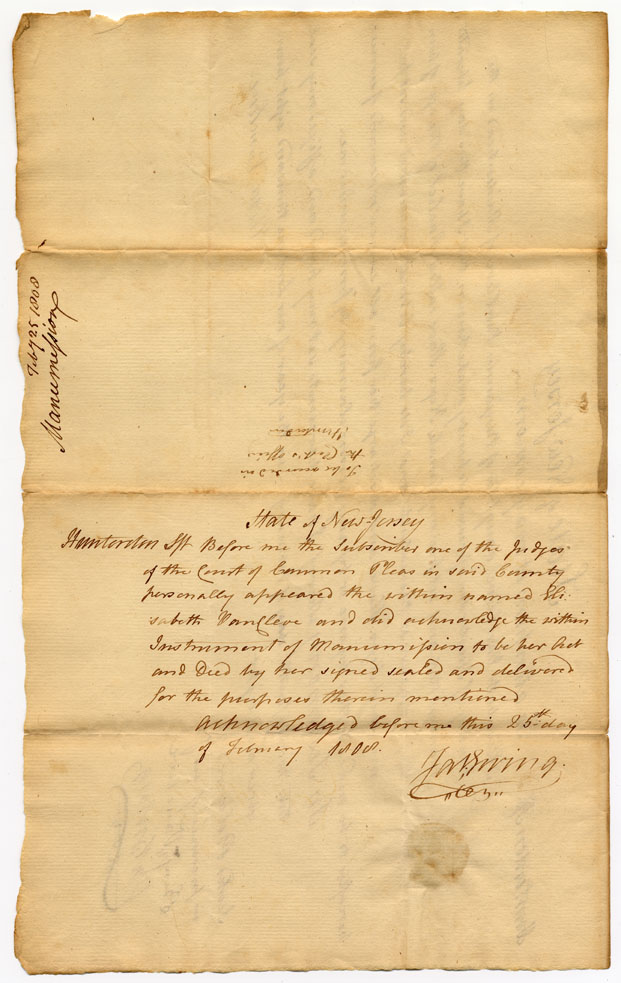 Feby 25 1808
Manumission
To be recorded in
the Clerk's office
Hunterdon
State of New-Jersey
Hunterdon Sst Before me the Subscriber one of the Judges
of the Court of Common Pleas in said County
personally appeared the within named Eli-
sabeth Vancleve and did acknowledge the within
Instrument of Manumission to be her Act
and Died by her signed sealed and delivered
for the purposes therein mentioned
Acknowledged before me this 25th day
of February 1808.
Ja Ewing.